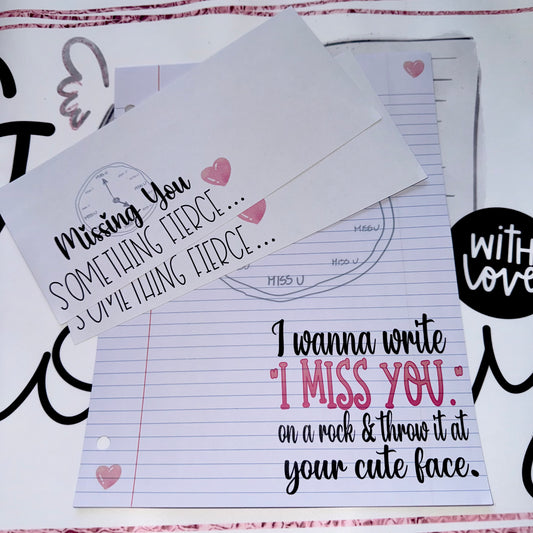 Missing You
SOMETHING FIERCE...
SOMETHING FIERCE...
MISS U
MISS U
MISS U
I wanna write
"I MISS YOU."
on a rock & throw it at
your cute face.
WITH
LOVE